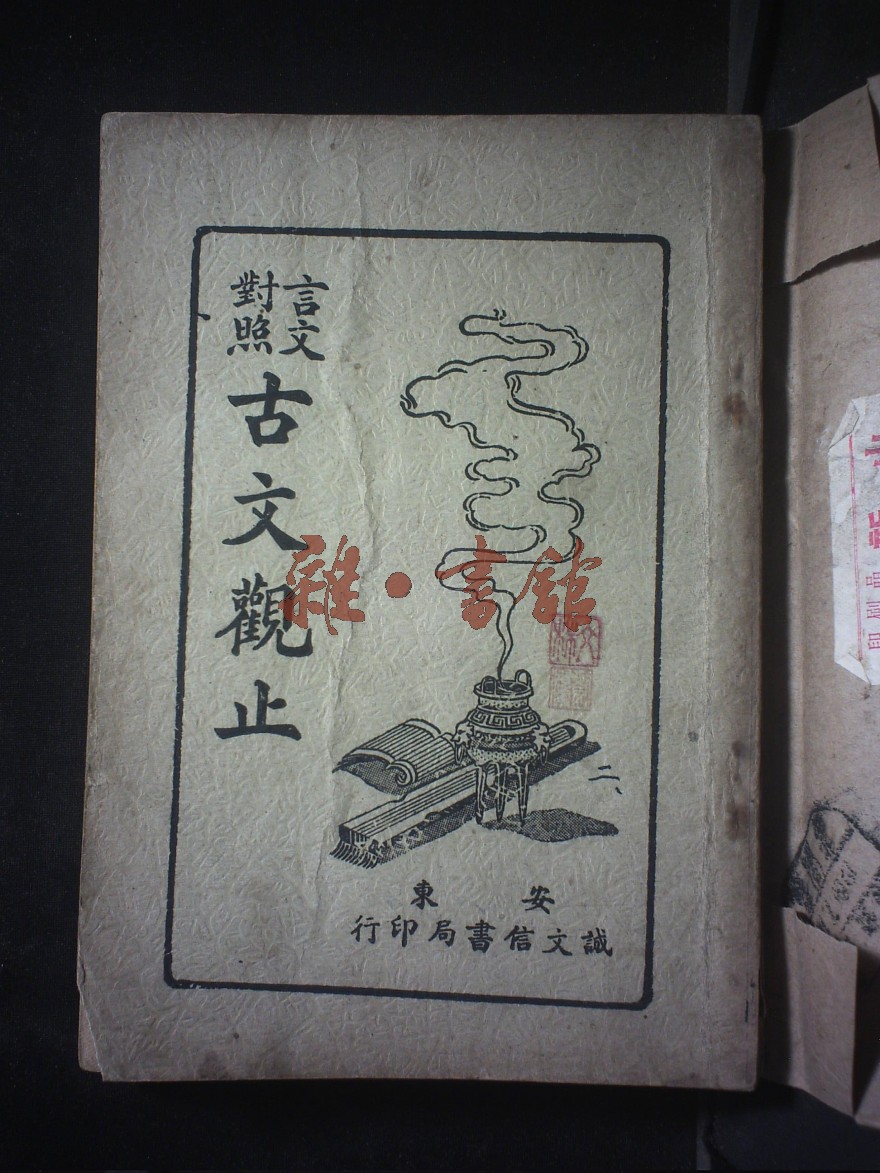 言文
對照
古文觀止
雜·書館
二、
安東
誠文信書局印行
印刷品